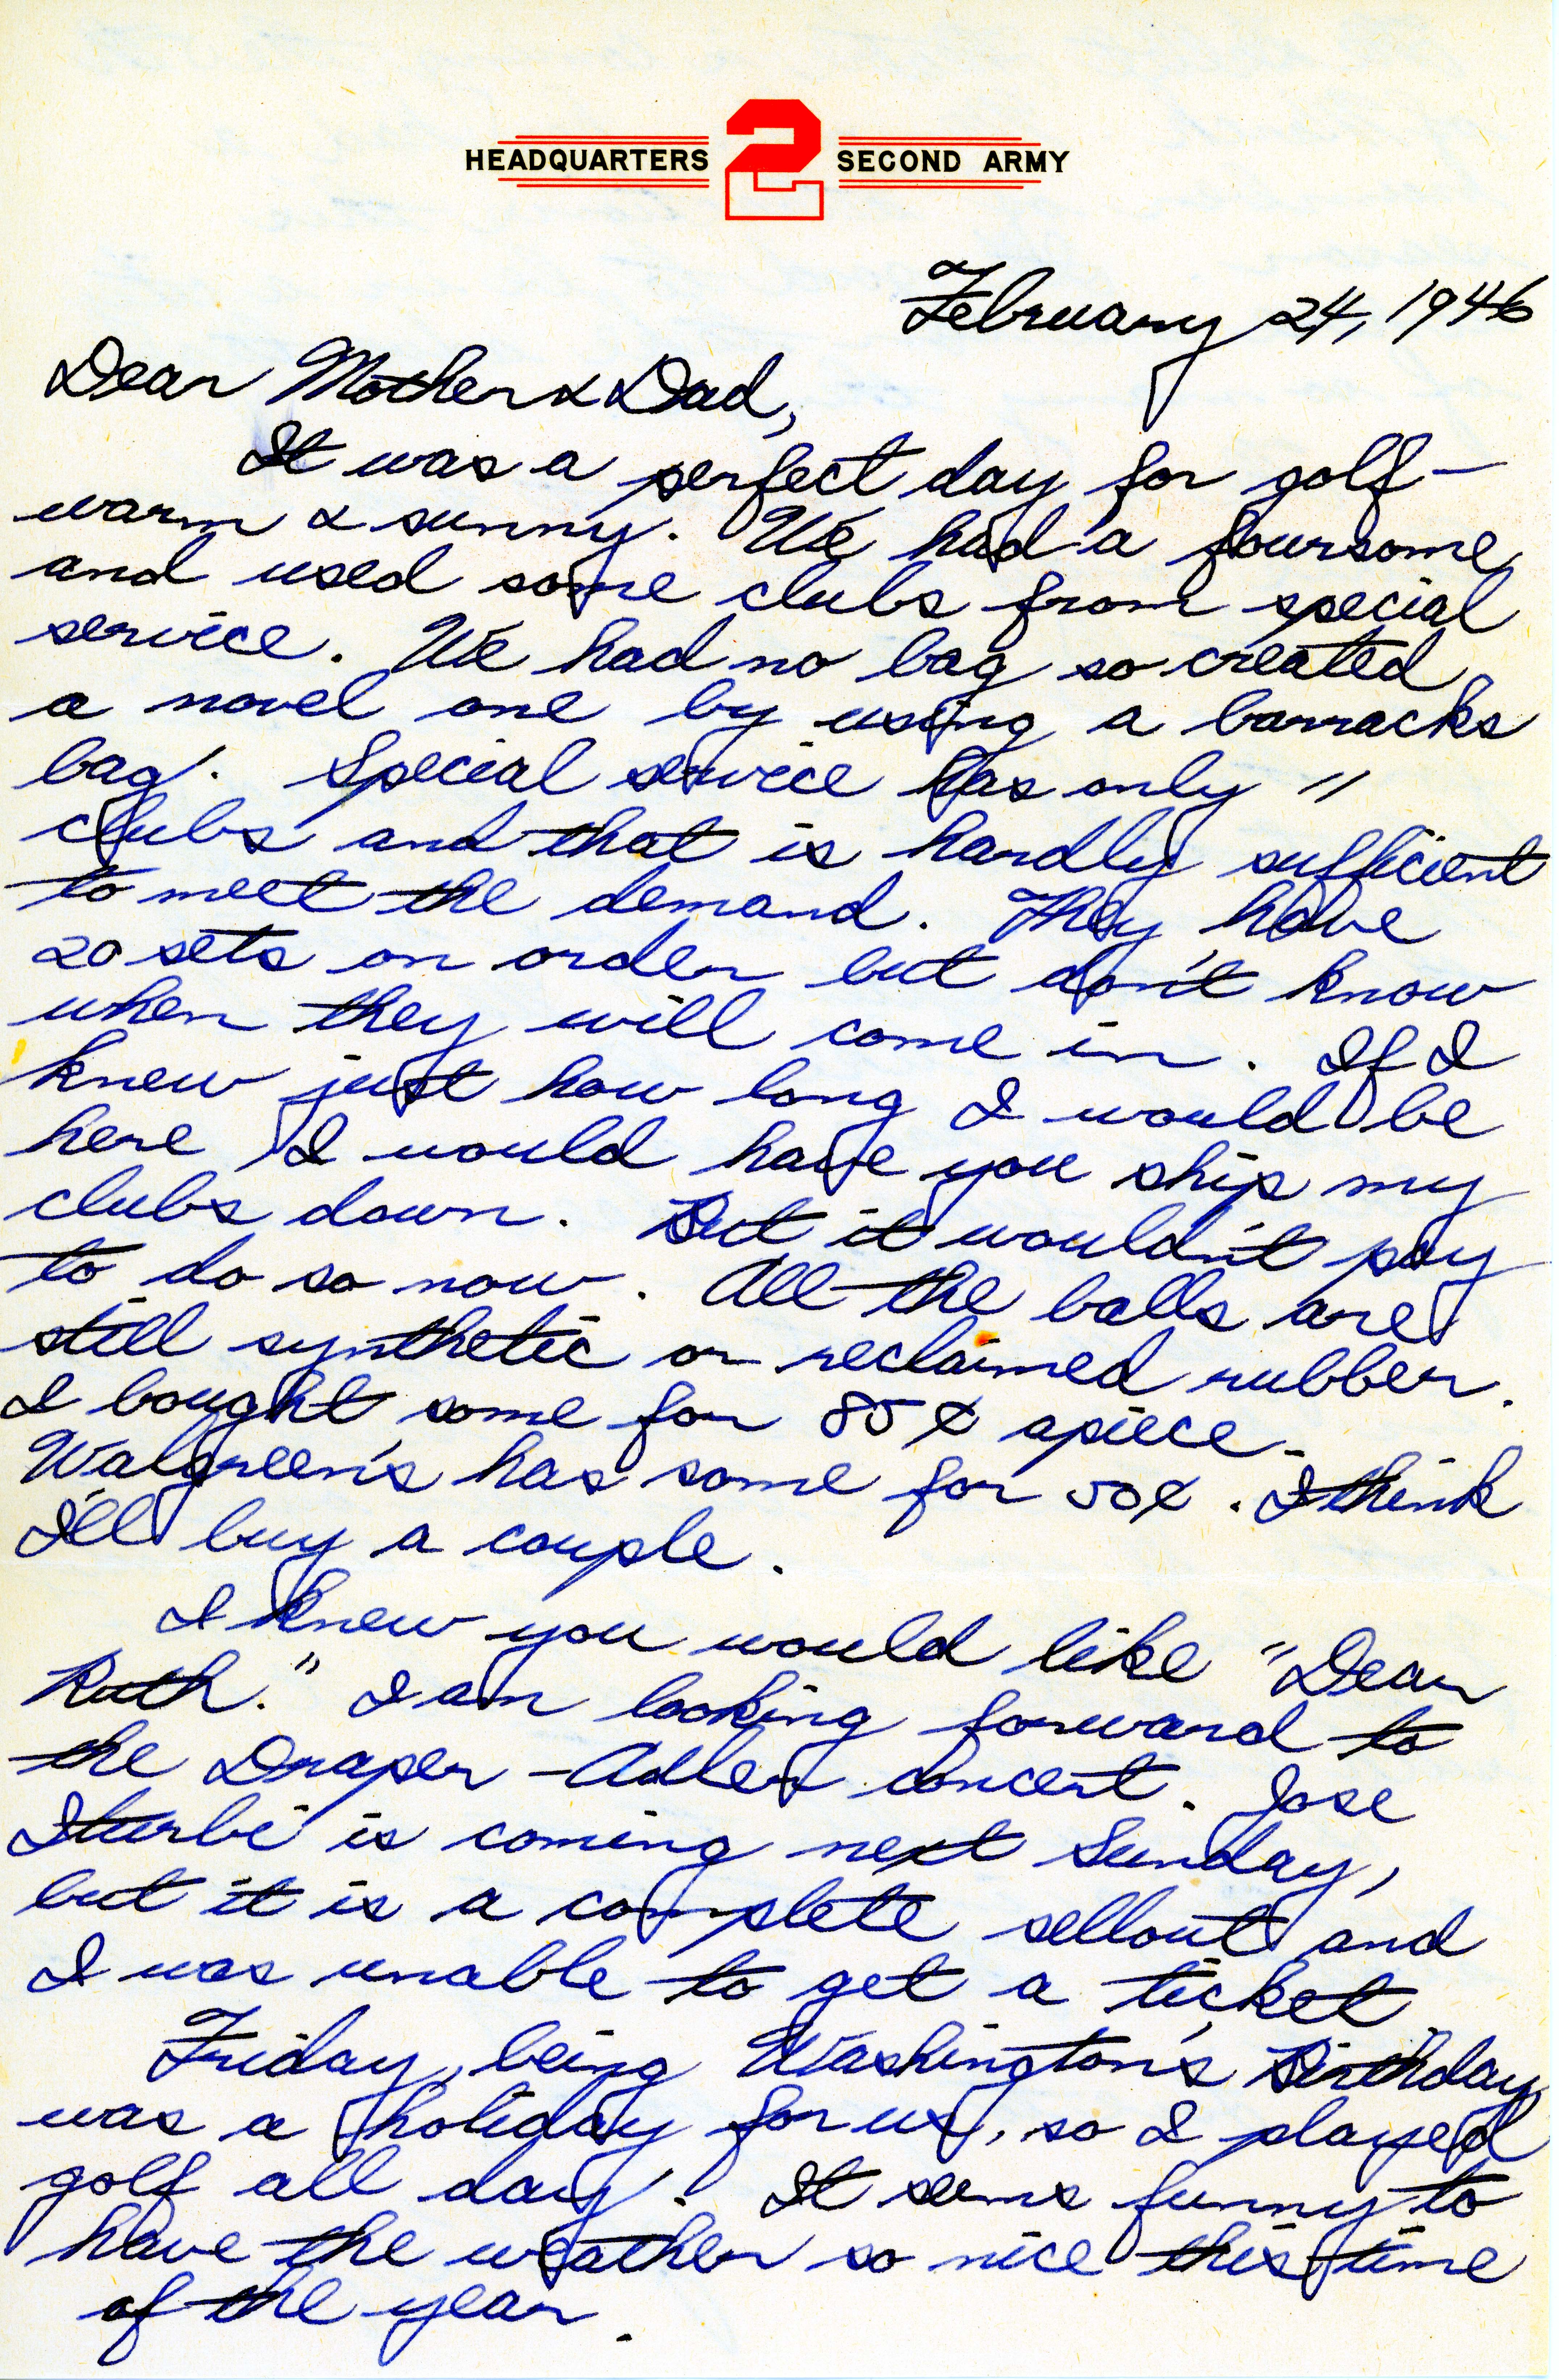 HEADQUARTERS 2 SECOND ARMY
February 24, 1946
Dear Mother & Dad,
It was a perfect day for golf —
warm & sunny. We had a foursome
and used some clubs from special
service. We had no bag so created
a novel one by using a barracks
bag. Special service has only 11
clubs and that is hardly sufficient
to meet the demand. They have
20 sets on order but don't know
when they will come in. If I
knew just how long I would be
here I would have you ship my
clubs down. But it wouldn't pay
to do so now. All the balls are
still synthetic or reclaimed rubber.
I bought some for 85¢ apiece.
Walgreen's has some for 50¢. I think
I'll buy a couple.
I knew you would like "Dear
Ruth." I am looking forward to
the Draper-Adler concert. Jose
Iturbi is coming next Sunday,
but it is a complete sellout and
I was unable to get a ticket.
Friday, being Washington's Birthday,
was a holiday for us, so I played
golf all day. It seems funny to
have the weather so nice this time
of the year.